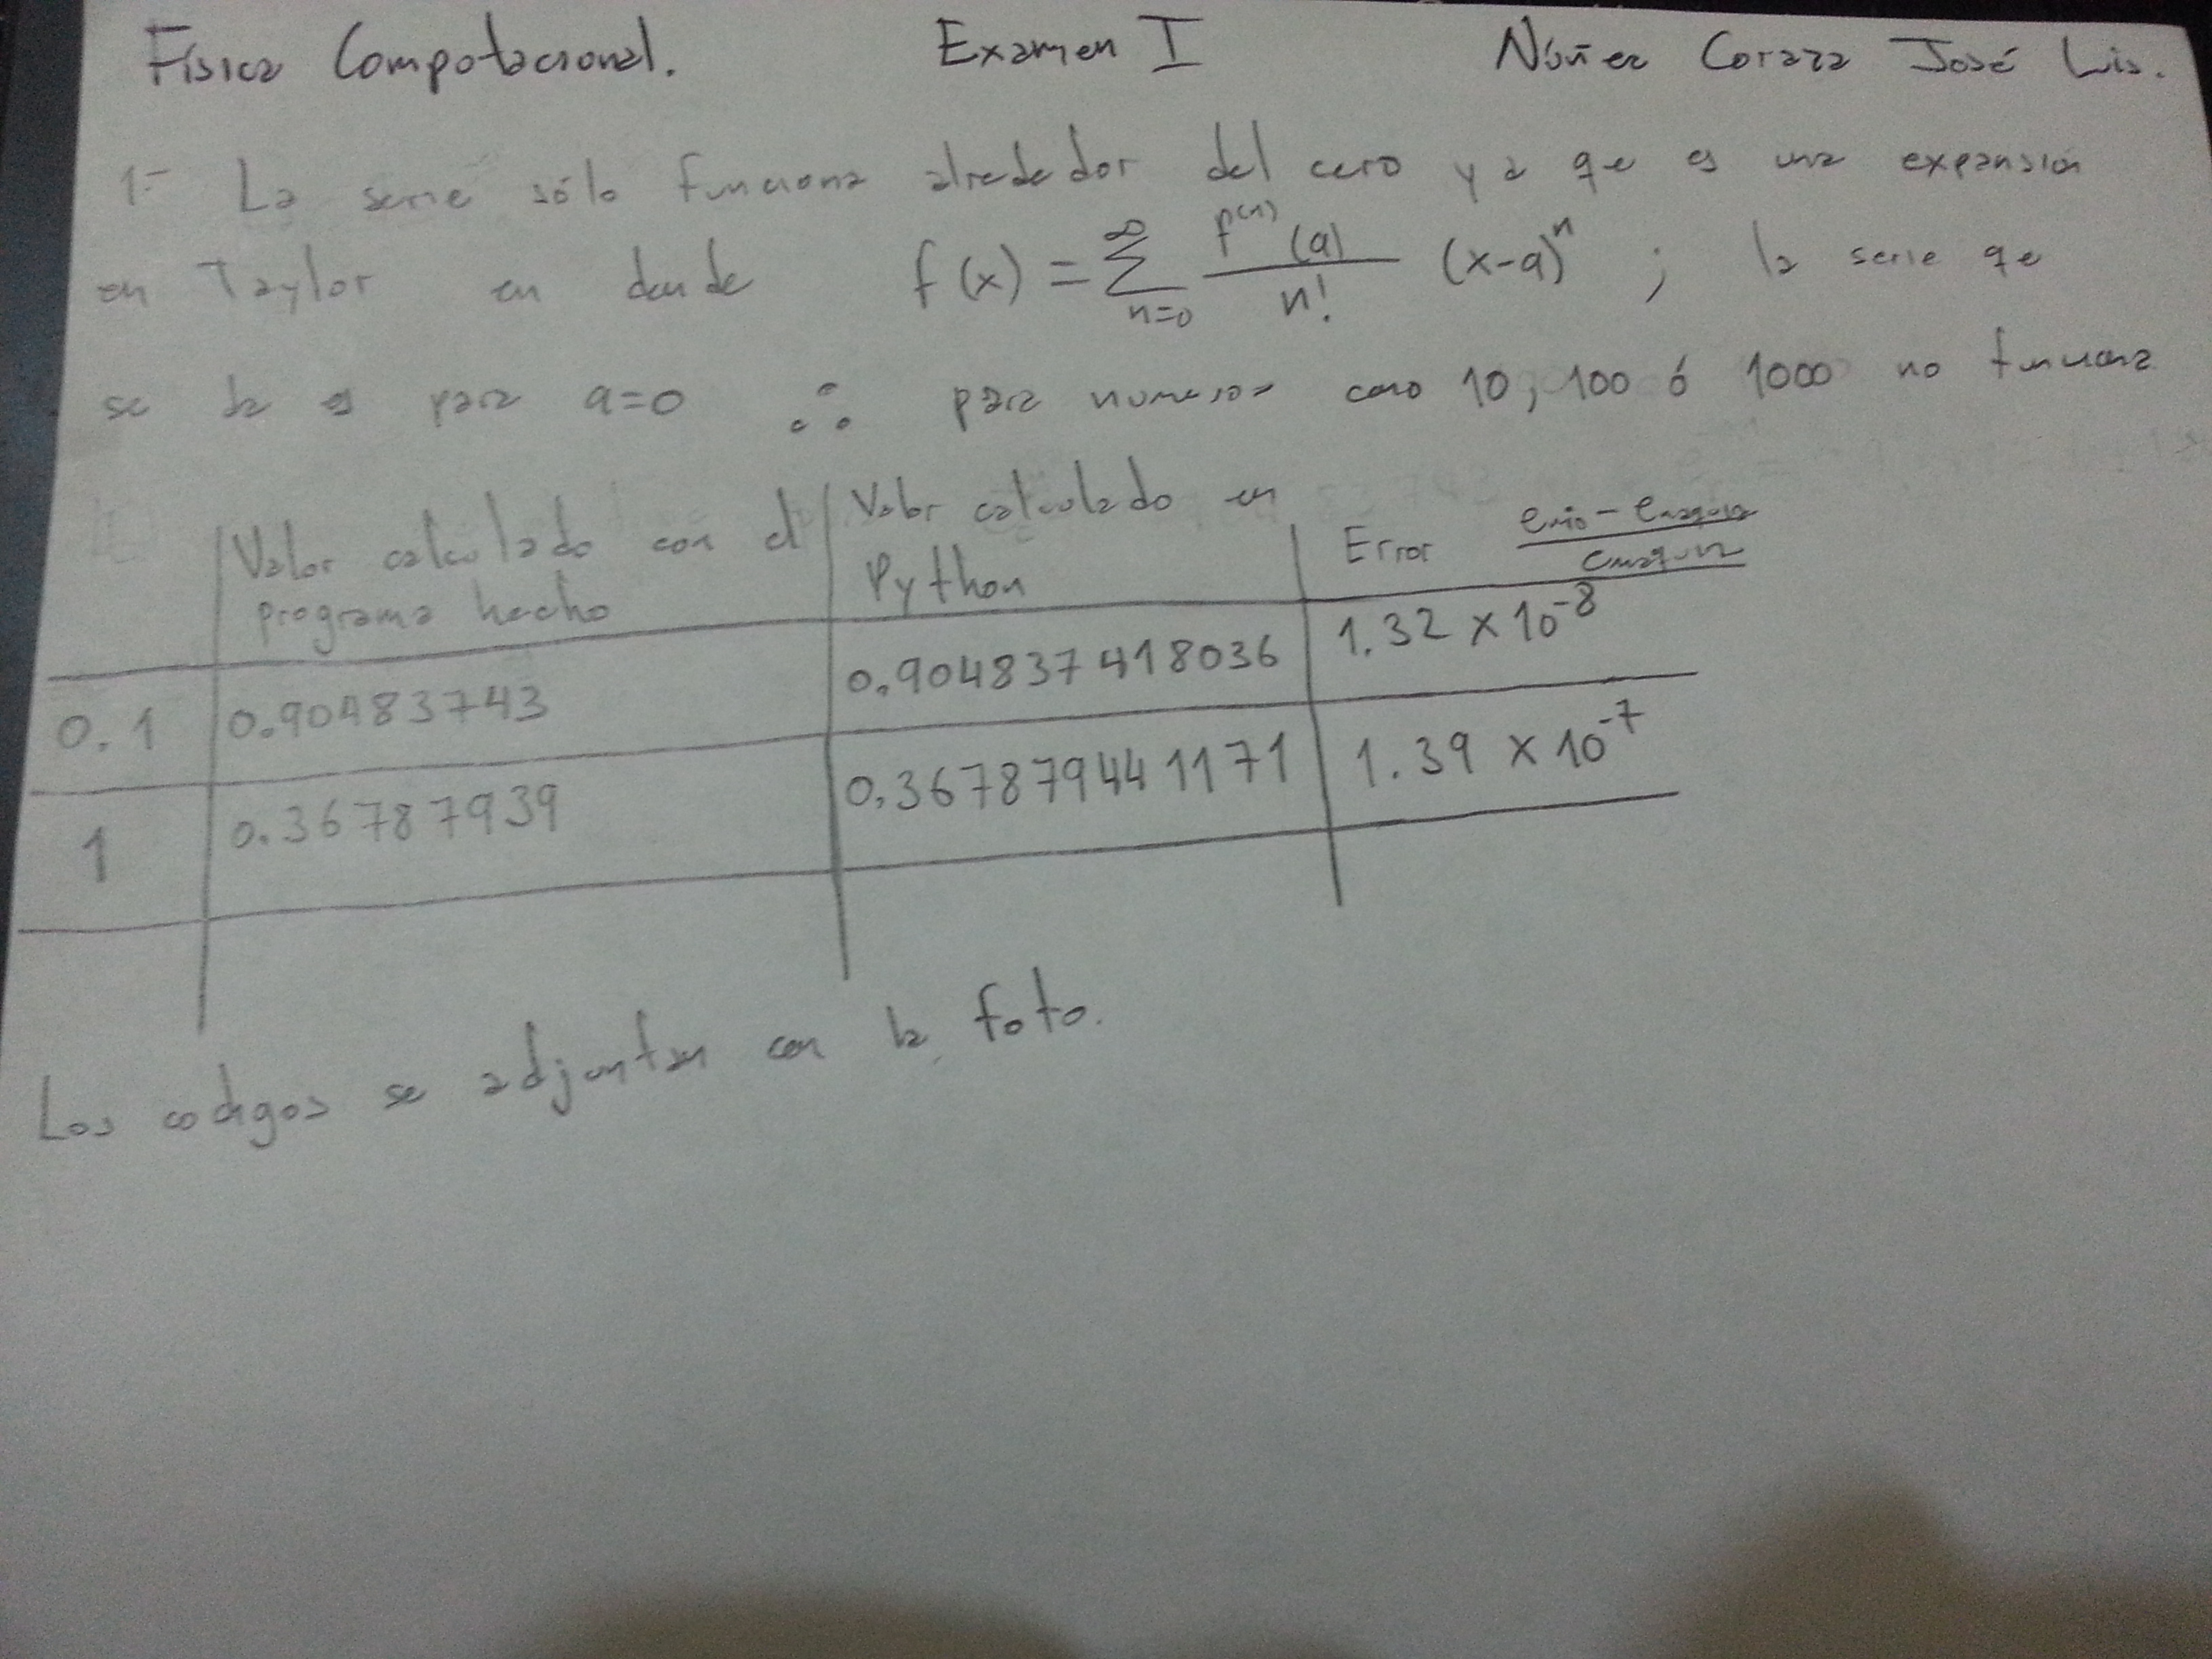 Física Computacional. Examen I Núñez Coraza José Luis.
1.- La serie sólo funciona alrededor del cero ya que es una expansión
en Taylor en donde f(x) = ∑_{n=0}^{∞} f^{(n)}(a)/n! (x-a)^n ; la serie que
se da es para a=0 ∴ para numeros como 10, 100 ó 1000 no funciona
Valor calculado con el programa hecho | Valor calculado en Python | Error (e_mio - e_maquina)/e_maquina
0.1 | 0.90483743 | 0.904837418036 | 1.32 x 10^-8
1 | 0.36787939 | 0.367879441171 | 1.39 x 10^-7
Los codigos se adjuntan con la foto.